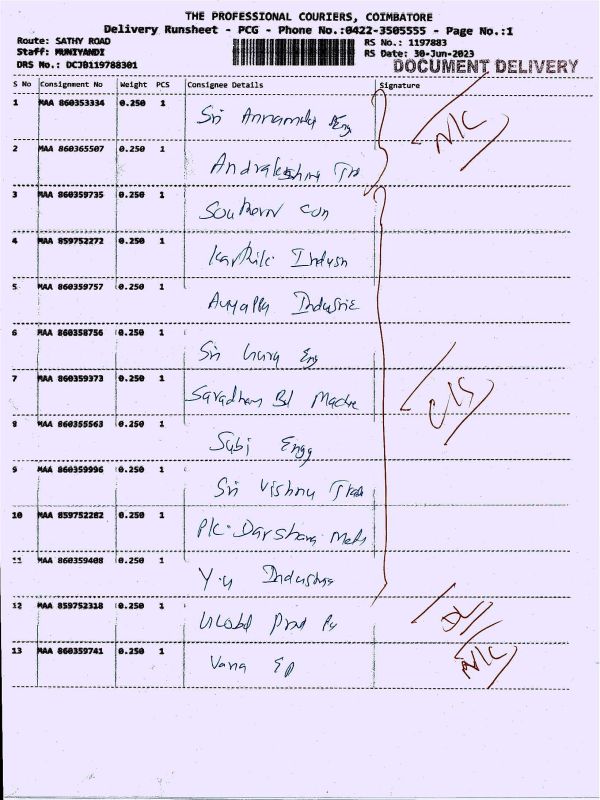 THE PROFESSIONAL COURIERS, COIMBATORE
Delivery Runsheet - PCG - Phone No.:0422-3505555 - Page No.:1
Route: SATHY ROAD RS No.: 1197883
Staff: MUNIYANDI RS Date: 30-Jun-2023
DRS No.: DCJB119788301 DOCUMENT DELIVERY
S No Consignment No Weight PCS Consignee Details Signature
1 MAA 860353334 0.250 1 Sri Eng N/C
2 MAA 860365507 0.250 1
3 MAA 860359735 0.250 1 Southern Con
4 MAA 859752272 0.250 1 Karthik Indush
5 MAA 860359757 0.250 1 Ayyappa Industrie
6 MAA 860358756 0.250 1 Sri Guru Eng
7 MAA 860359373 0.250 1 C/S
8 MAA 860355563 0.250 1 Subi Engg
9 MAA 860359996 0.250 1 Sri Vishnu Trade
10 MAA 859752282 0.250 1 PK. Darshana Mets
11 MAA 860359408 0.250 1 Y.U
12 MAA 859752318 0.250 1 Global Prod DL
13 MAA 860359741 0.250 1 Vana Ep N/C